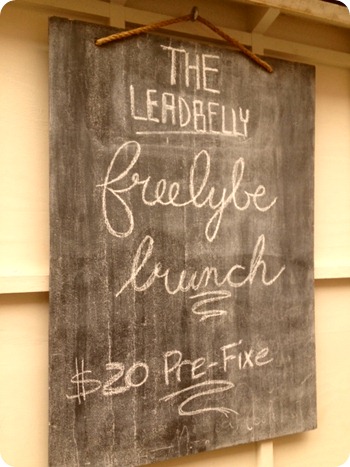 THE
LEADBELLY
freelybe
brunch
$20 Pre-Fixe